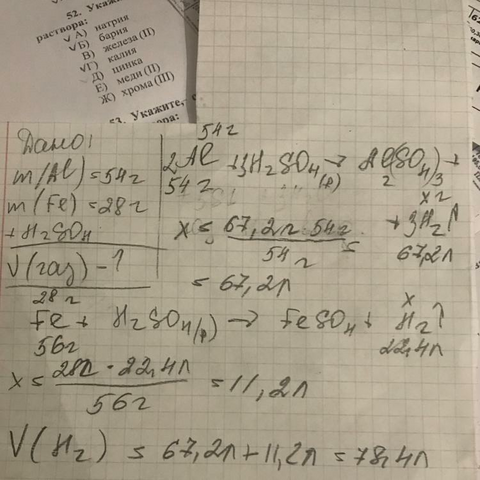 52. Укажи
раствора:
√ А) натрия
√ Б) бария
В) железа (II)
√ Г) калия
Д) цинка
Е) меди (II)
Ж) хрома (III)
53. Укажите,
Дано:
m(Al) = 54г
m(Fe) = 28г
+ H2SO4
V(газ) - ?
54г
2Al + 3H2SO4(р) → Al2(SO4)3 +
54г
x г
+ 3H2↑
67,2л
x = 67,2л · 54г =
54г
= 67,2л
28г x
Fe + H2SO4(р) → FeSO4 + H2↑
56г 22,4л
x = 28г · 22,4л = 11,2л
56г
V(H2) = 67,2л + 11,2л = 78,4л